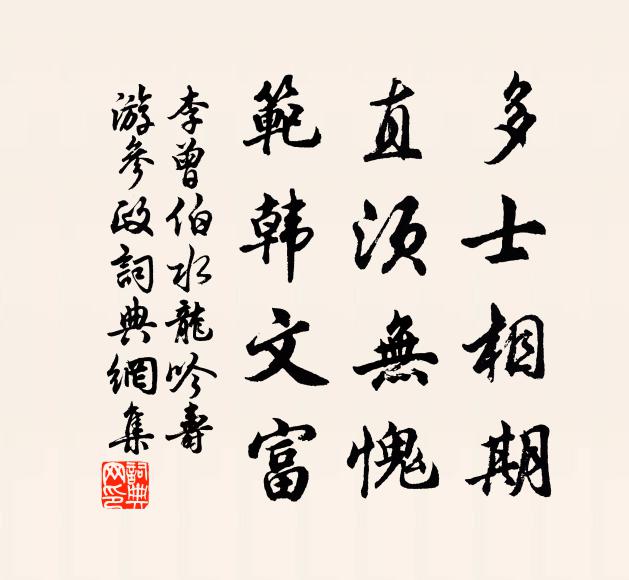 多士相期
直須無愧
範韩文富
李曾伯水龍吟壽
游參政詞典網集
詞典网印